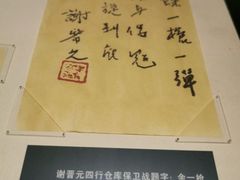 一槍一彈
与倭寇
旋到底
謝晋元
谢晋元四行仓库保卫战题字：余一枪